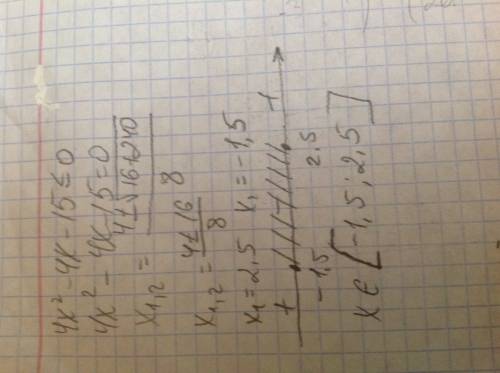 4x² - 4x - 15 ≤ 0
4x² - 4x - 15 = 0
x₁,₂ = (4 ± √16 + 240) / 8
x₁,₂ = (4 ± 16) / 8
x₁ = 2,5 x₁ = -1,5
+ - +
-1,5 2,5
x ∈ [-1,5; 2,5]